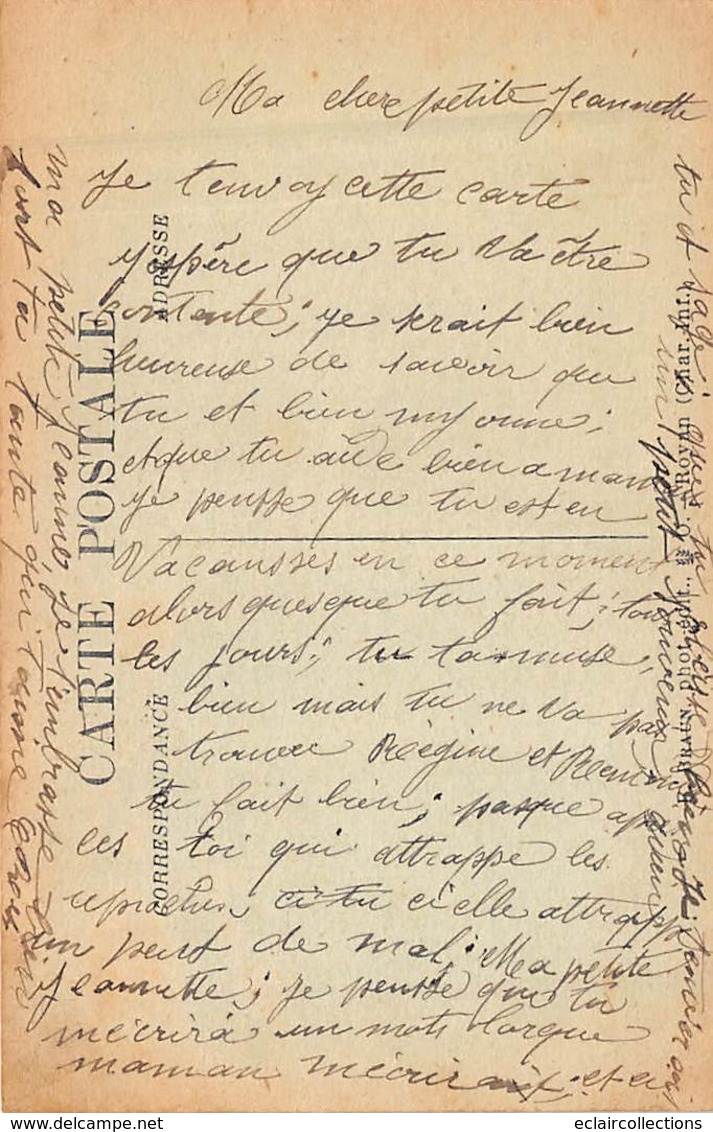 Ma chere petite Jeannette
Je t'envoy cette carte
j'espère que tu va être
contente; je serait bien
heureuse de savoir que
tu et bien mignonne;
et que tu aide bien a maman
je pensse que tu est en
Vacansses en ce moment
alors quesque tu fait; tou
les jours; tu tamuse
bien mais tu ne va pas
trouver Régine et
tu fait bien; pasque apr
les toi qui attrappe les
reproches, ci tu ci elle attrappe
un peut de mal; Ma petite
Jeannette; je pensse que tu
mécrira un mots lorque
maman mécrirait; et ci
tu et sage; que tu
un petit
ma petite Jeanne je t'embrasse bien
fort ta tante qui t'aime
CARTE POSTALE
CORRESPONDANCE
ADRESSE
BRAUN phot.-édit., Royan (Char.-Inf.)
eclaircollections